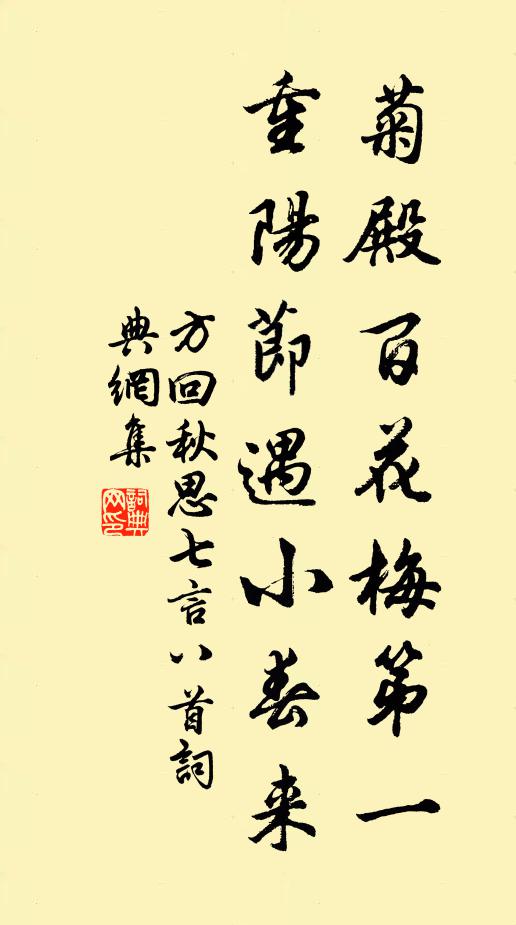 菊殿百花梅第一
重陽節遇小春来
方回秋思七言八首詞
典網集
詞典网印